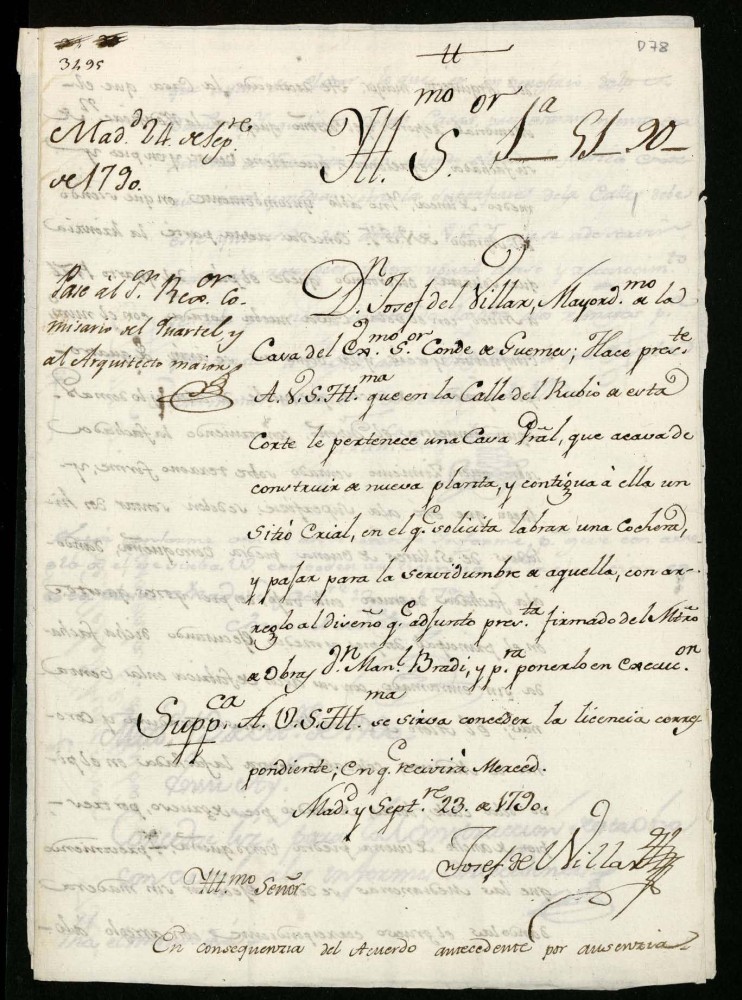 3495
D78
Mad.d 24. de Sep.re
de 1790.
Pase al S.or Rex.or Co-
misario del Quartel, y
al Arquitecto maior
Ill.mo S.or 1a 51 90
D.n Josef del Villar, Mayord.mo de la
Casa del Ex.mo S.or Conde de Guemes; Hace pres.te
A. V. S. Ill.ma que en la Calle del Rubio de esta
Corte le pertenece una Casa Pral, que acava de
construir de nueva planta, y contigua à ella un
Sitio Erial, en el q.e solicita labrar una Cochera,
y pajar para la servidumbre de aquella, con ar-
reglo al diseño q.e adjunto pres.ta firmado del Mtro
de Obras D.n Man.l Bradi, y p.ra ponerlo en execuc.on
Supp.ca A. V. S. Ill.ma se sirva conceder la licencia corres
pondiente; en q.e recivirà Merced.
Mad.d y Sept.re 23. de 1790.
Josef de Villar
Ill.mo Señor
En consequenzia del Acuerdo antecedente por ausenzia